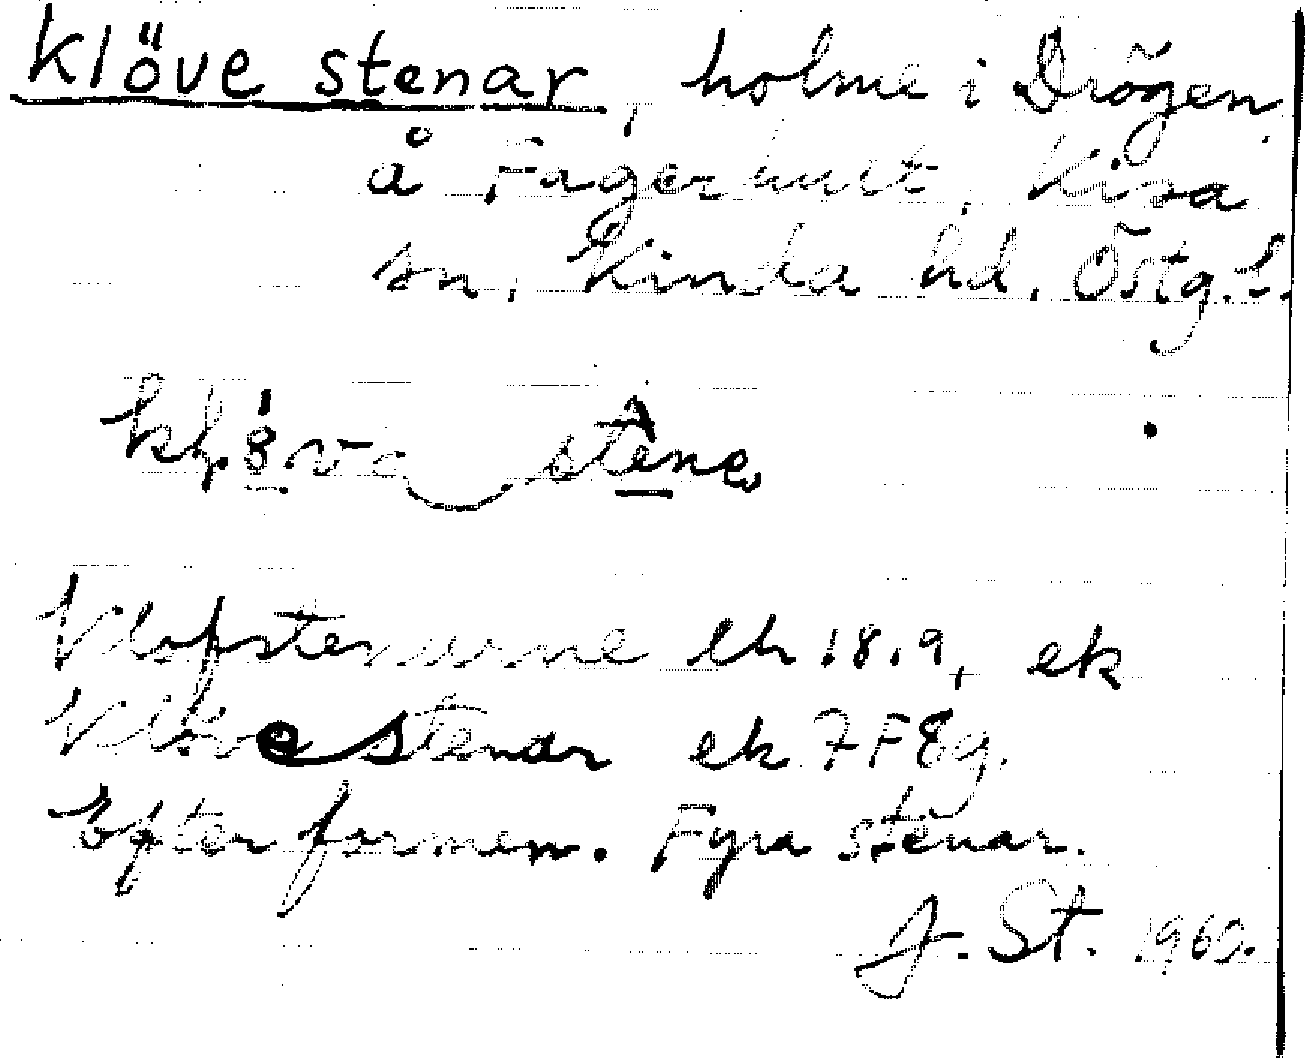 klöve stenar, holme i Drögen
å Fagerhult, Kisa
sn, Kinda hd, Östg. l.
Klofstenarne ek
Klöve stenar ek 7F8g.
Efter formen. Fyra stenar.
J. St. 1960.